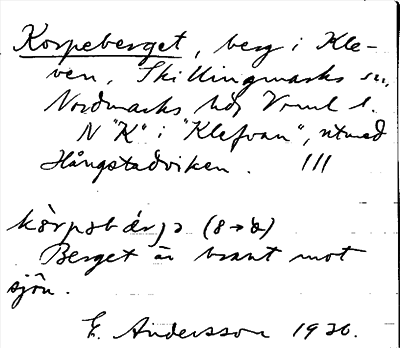 Korpeberget, berg i Kle-
ven, Skillingmarks sn,
Nordmarks hd, Vrml l.
N "K" i "Klefvan", utmed
Hångstadviken. 111
kòrpəbár̡ə (8→8)
Berget är brant mot
sjön.
E. Andersson 1936.